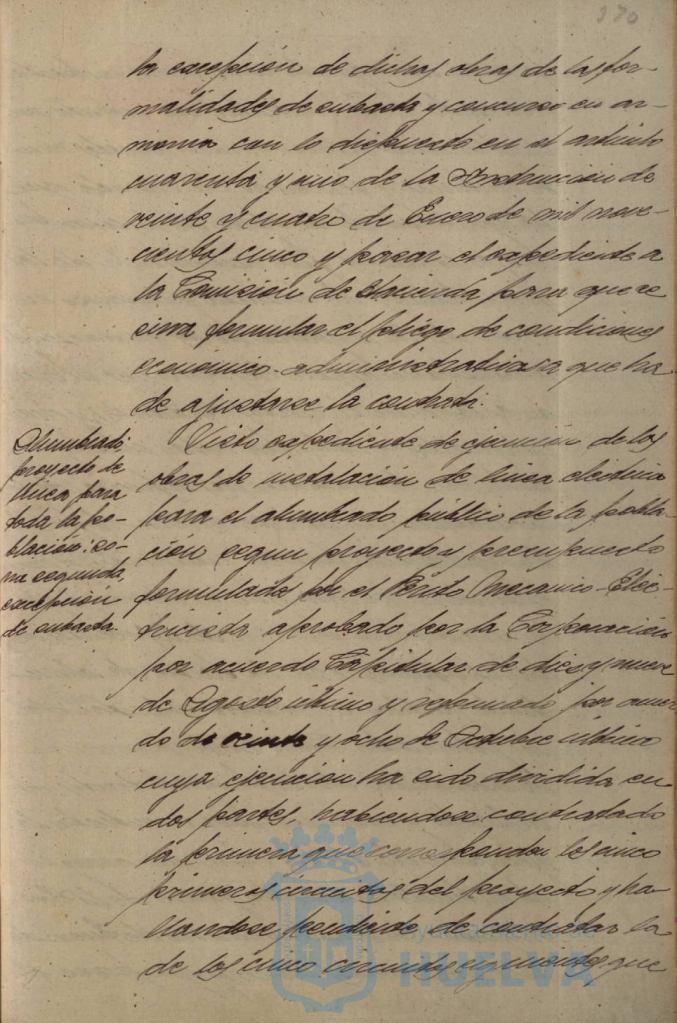 370
la excepción de dichas obras de las for-
malidades de subasta y concurso en ar-
monia con lo dispuesto en el artículo
cuarenta y uno de la Instrucción de
veinte y cuatro de Enero de mil nove-
cientos cinco y pasar el expediente a
la Comisión de Hacienda para que se
sirva formular el pliego de condiciones
económico-administrativas a que ha
de ajustarse la contrata.
Alumbrado:
proyecto de
línea para
toda la po-
blación: zo-
na segunda,
excepción
de subasta.
Visto expediente de ejecución de los
obras de instalación de línea eléctrica
para el alumbrado público de la pobla-
ción segun proyecto y presupuesto
formulados por el Perito Mecanico-Elec-
tricista aprobado por la Corporación
por acuerdo Capitular de diez y nueve
de Agosto último y reformado por acuer-
do de veinte y ocho de Octubre último
cuya ejecución ha sido dividida en
dos partes, habiendose contratado
la primera que corresponden los cinco
primeros circuitos del proyecto y ha-
llandose pendiente de contratar la
de los cinco circuitos siguientes que
HUELVA